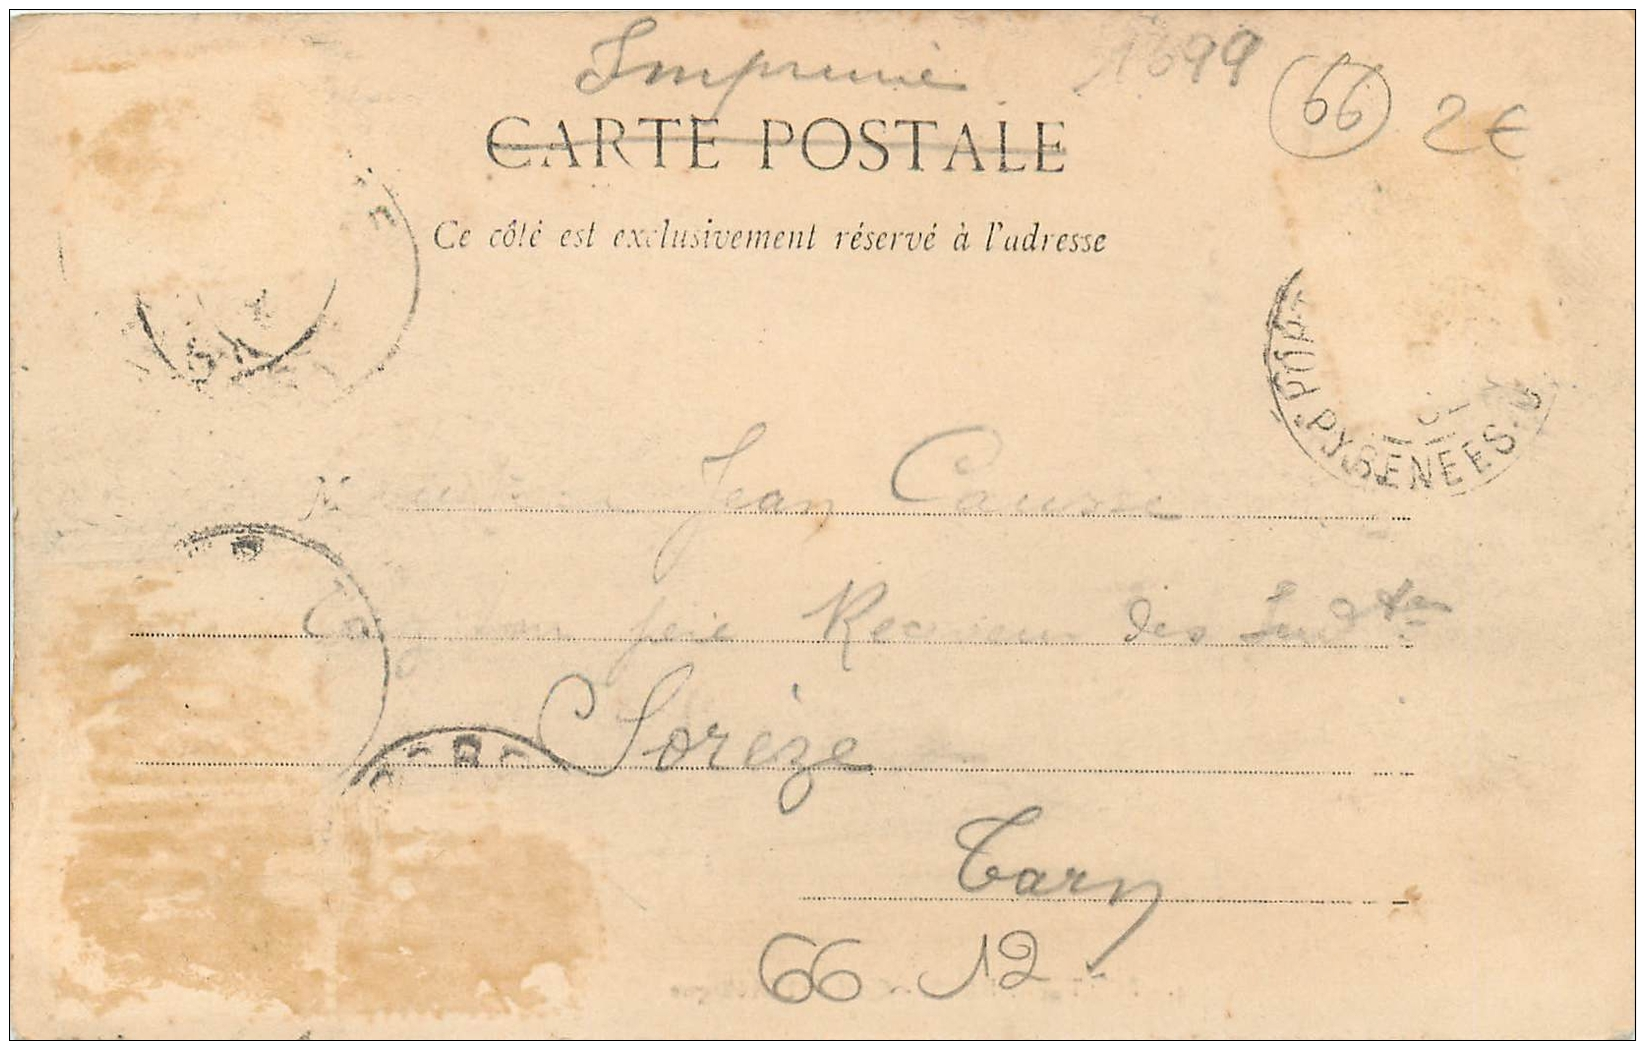 Imprimé 1899
66 2€
CARTE POSTALE
Ce côté est exclusivement réservé à l'adresse
PYRENEES
Monsieur Jean Causse
père Receveur des Ind tes
Sorèze
Tarn
66 12